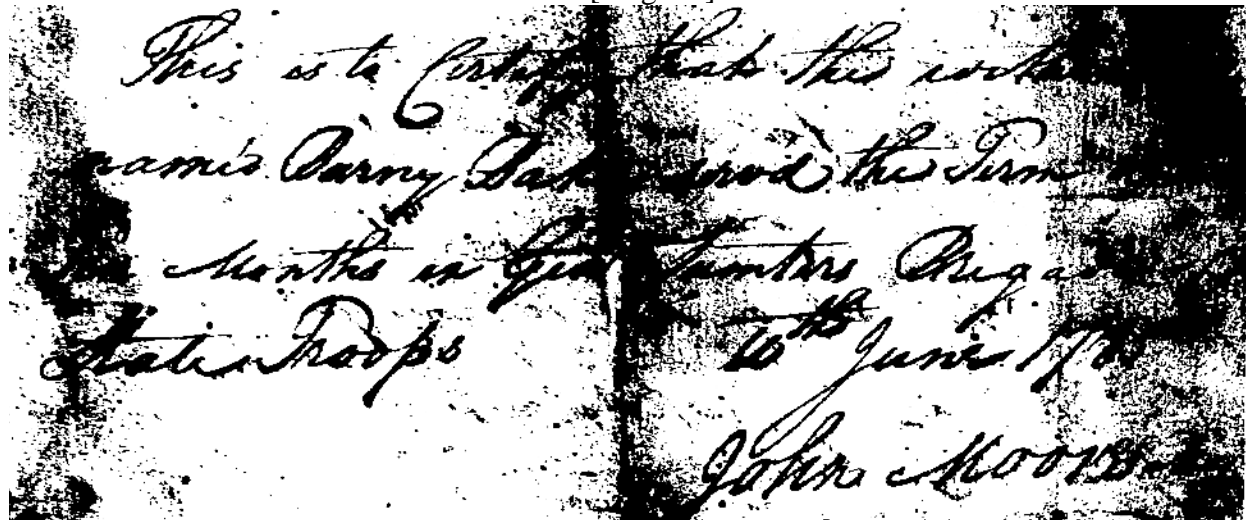 This is to Certify that the within
name'd Barny Baker serv'd the Term
Months in Genl Sumters Brigad
State Troops 10th June 178
John Moore